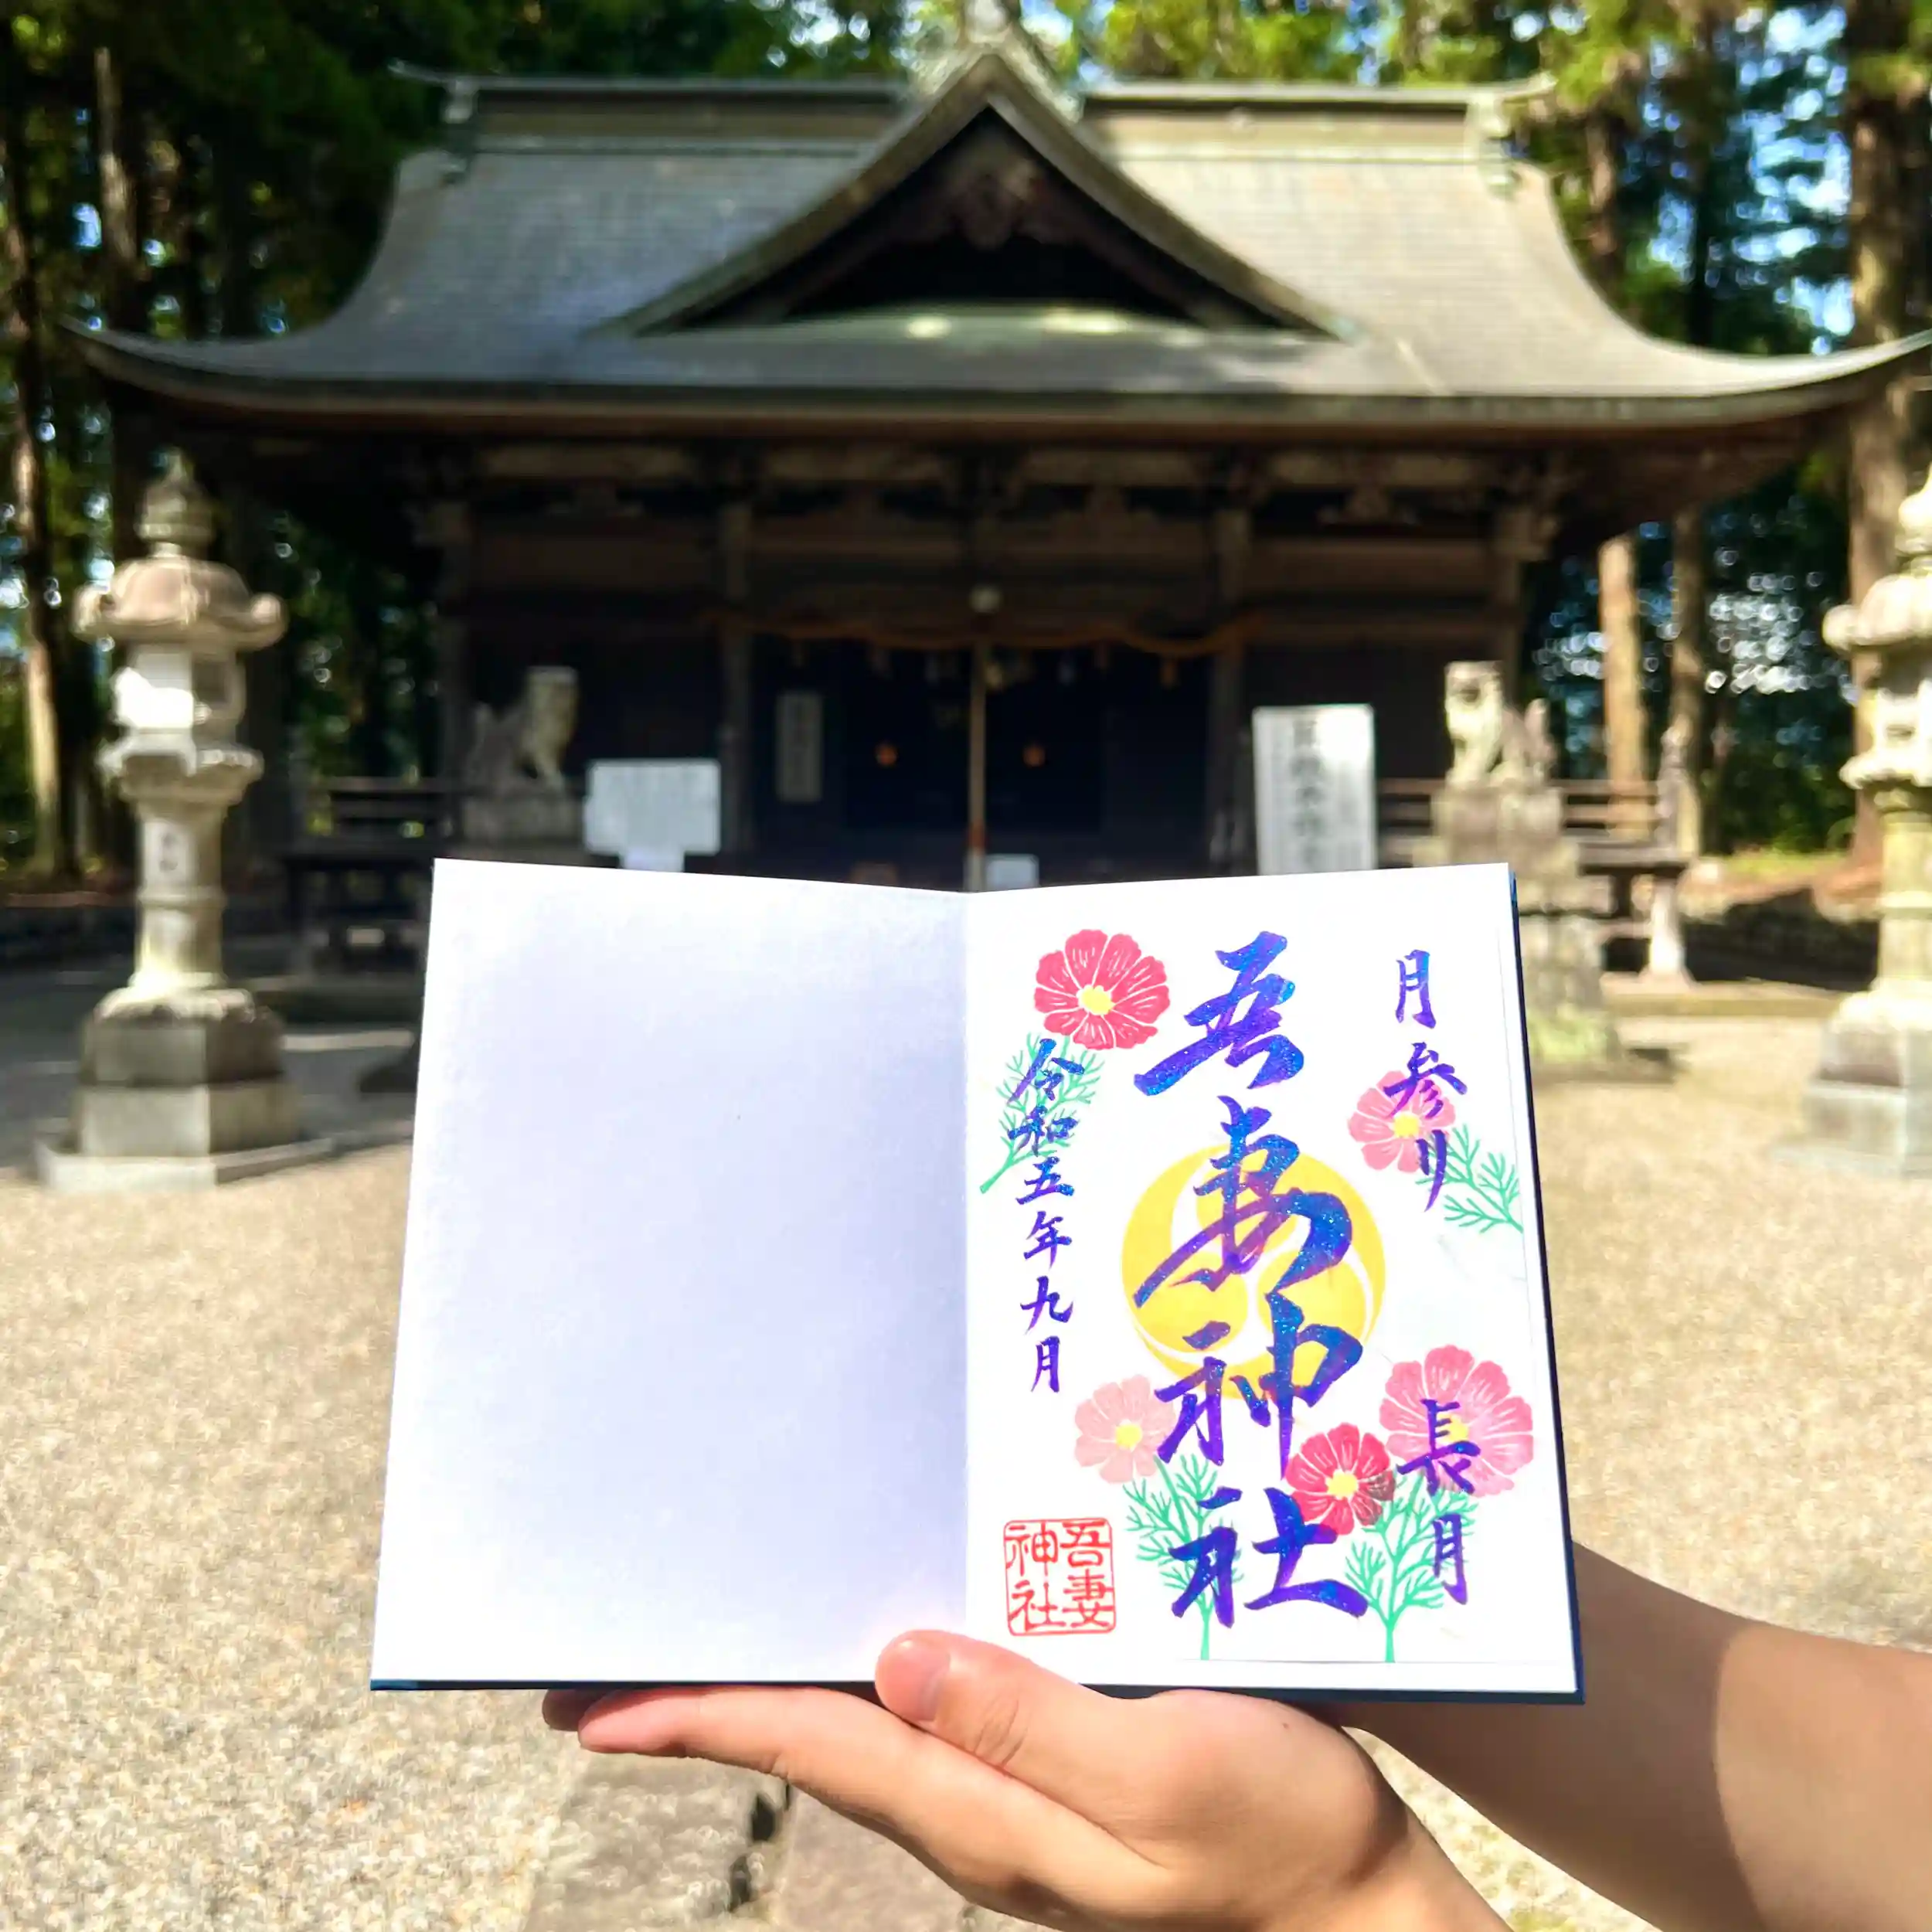 月参り
長月
吾妻神社
令和五年九月
吾妻
神社